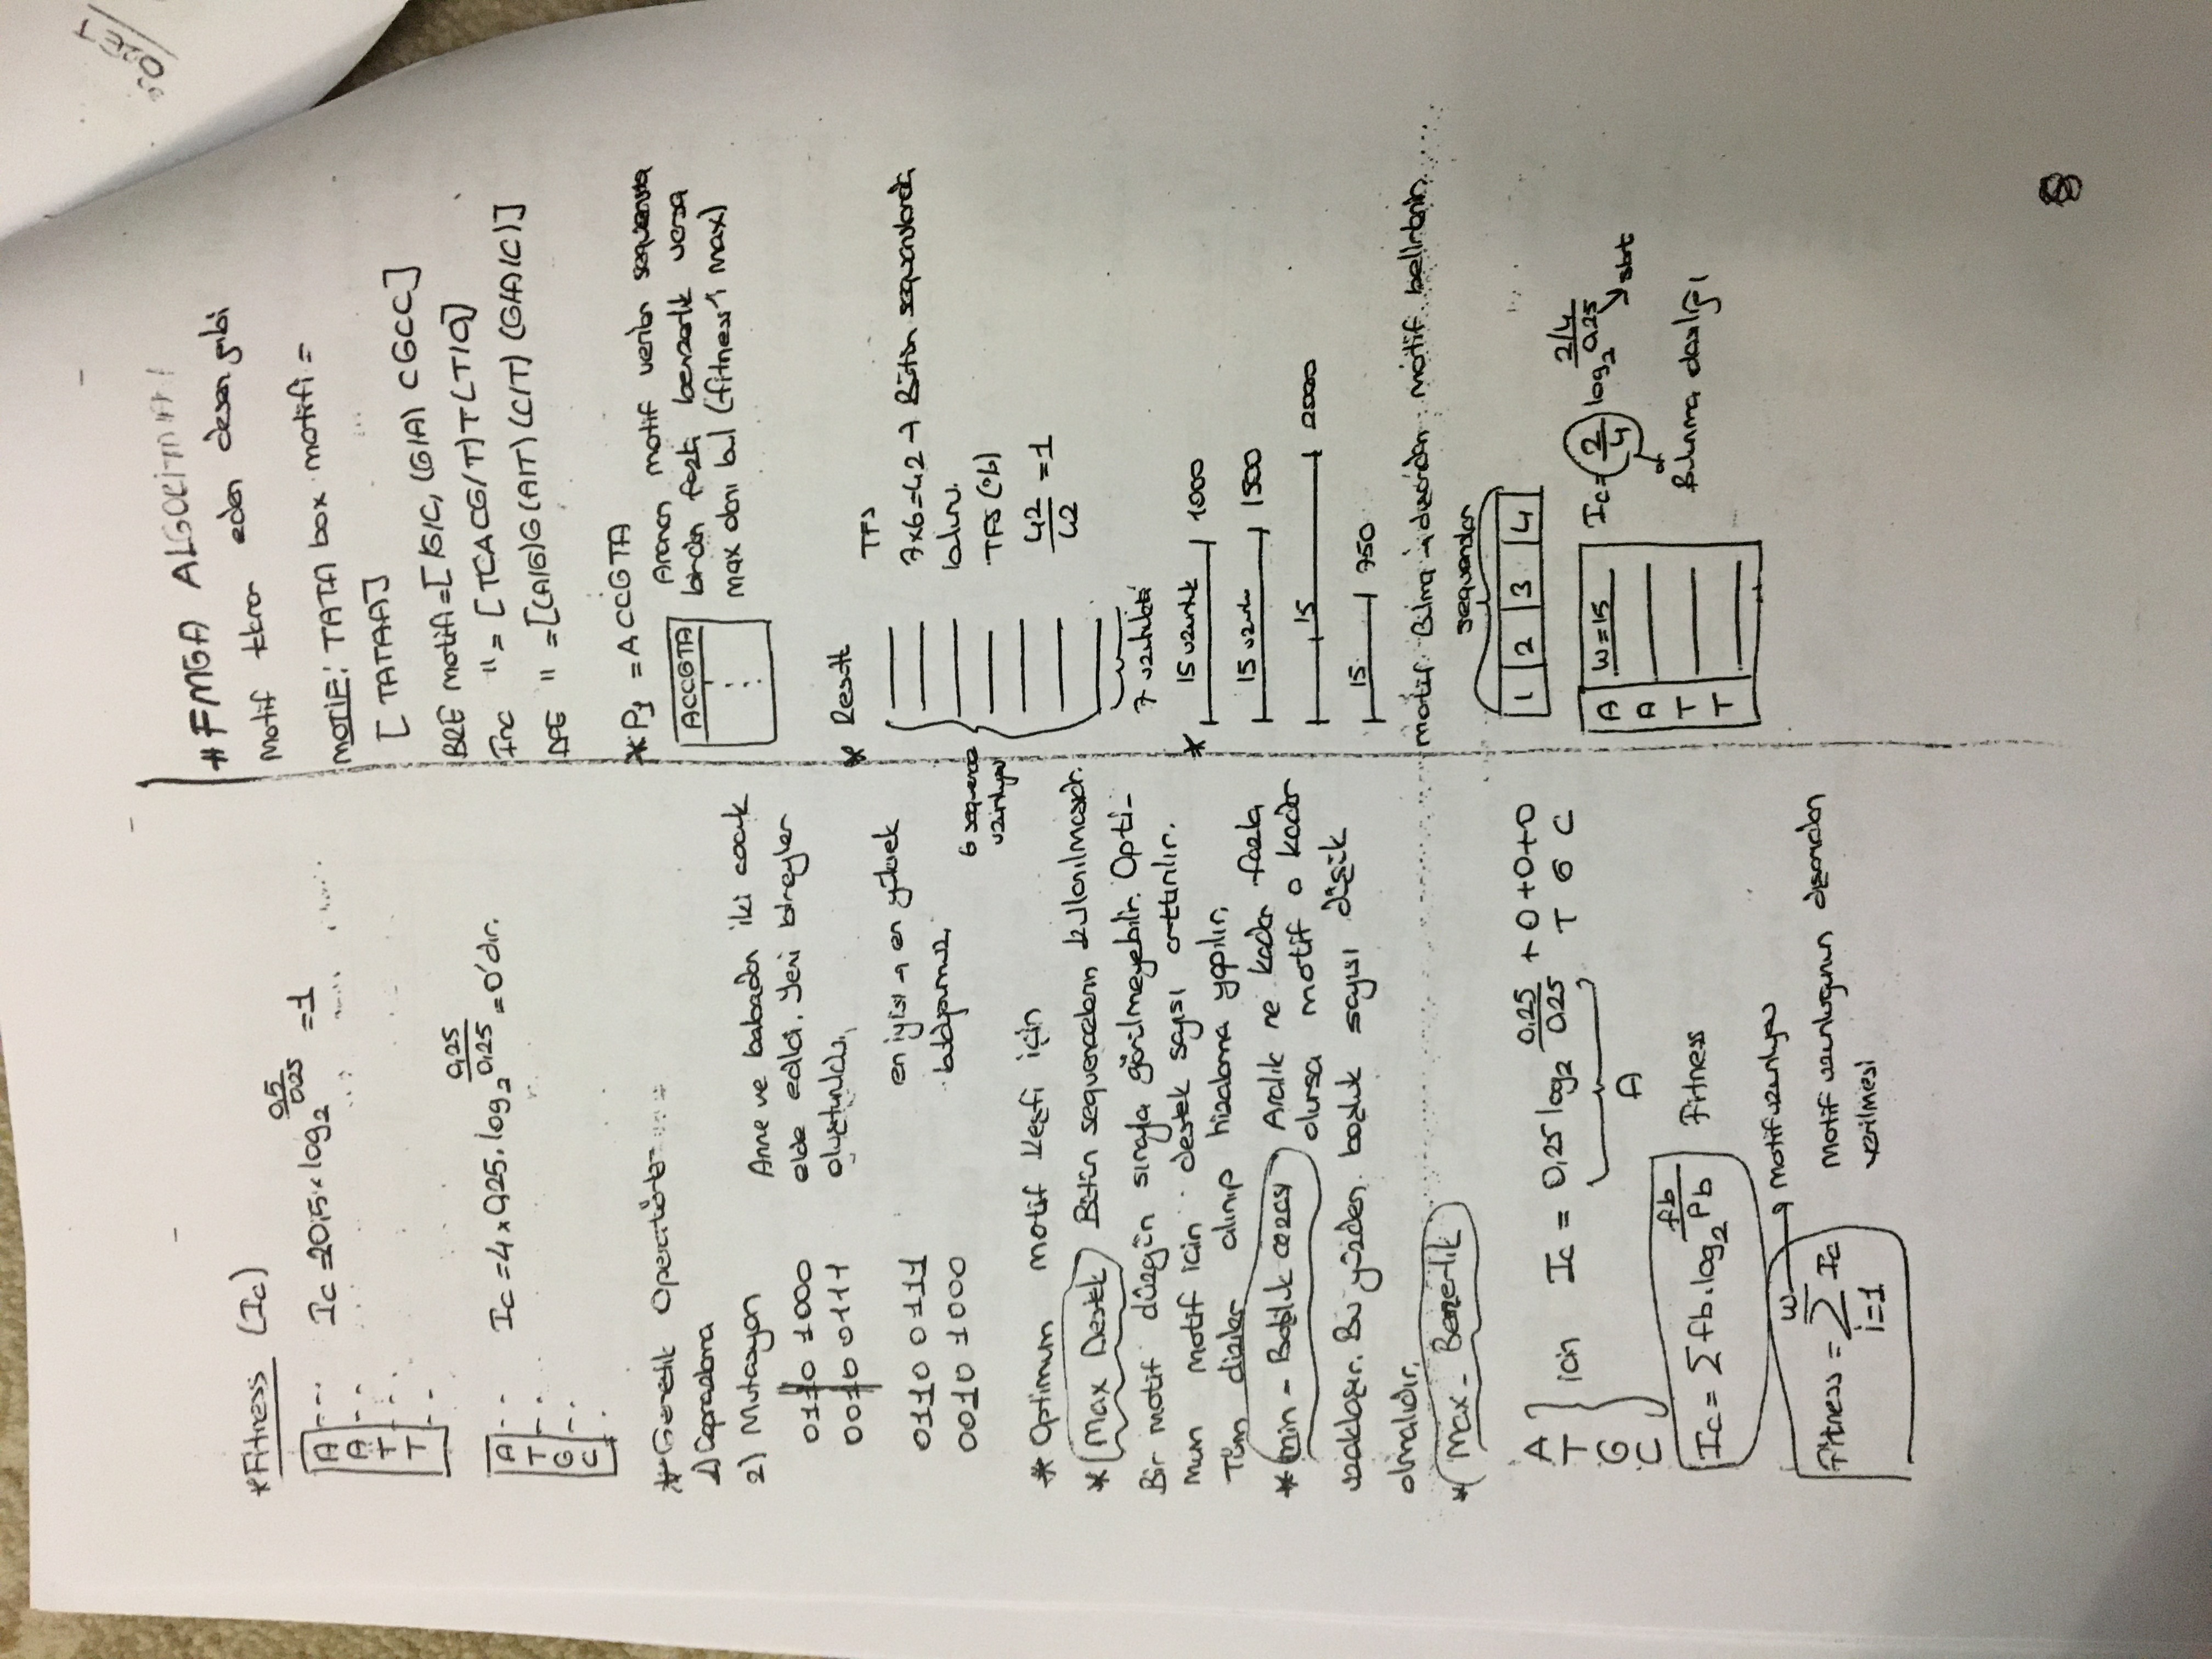 ÖZET
*Fitness (Ic)
A
A
T
T
Ic = 20,5 × log2 0,5/0,25 = 1
A
T
G
C
Ic = 4 × 0,25 . log2 0,25/0,25 = 0'dır.
* Genetik Operatörler
1) Çaprazlama
2) Mutasyon
0110 1000
0010 0111
Anne ve babadan iki çocuk
elde edildi. Yeni bireyler
oluşturuldu.
0110 0111
0010 1000
en iyisi → en yüksek
* Optimum motif Keşfi için
* Max Destek Bütün sequencelerin kullanılmasıdır.
Bir motif düzgün sırayla görülmeyebilir. Opti-
mum motif icin destek sayısı arttırılır.
Tüm diziler alınıp hizalama yapılır.
* min - Boşluk cezası Aralık ne kadar fazla
olursa motif o kadar
uzaklaşır. Bu yüzden boşluk sayısı düşük
olmalıdır.
* Max - Benzerlik
A
T
G
C
icin Ic = 0,25 log2 0,25/0,25 + 0 + 0 + 0
T G C
A
Ic = Σ fb . log2 fb/Pb Fitness
Fitness = Σ Ic
w → motif uzunluğu
i=1
motif uzunluğunun dışarıdan
verilmesi
# FMGA ALGORİTMASI
Motif tekrar eden desen gibi
MOTIF: TATA box motifi =
[TATAA]
BRE motifi = [/G/C, (G/A) CGCC]
Inc " = [TCACG/T) T(T/C)]
DPE " = [(A/G)G(A/T)(C/T)(G/A/C)]
* P1 = ACCGTA
ACCGTA
Aranan motif verilen sequensta
birden fazla benzerlik varsa
max olanı bul (fitness'ı max)
* Result
6 sequence
uzunluğu
7 uzunluktu
TFS
7x6=42 → Bütün sequenslarda
bulunu.
TFS (%)
42/42 = 1
* 15 uzunluk 1000
15 uzunlu 1500
15 2000
15 750
motif Bulma → dışarıdan motif belirlenir.
sequenslar
1 2 3 4
A
A
T
T
W=15
Ic = 2/4 log2 2/4/0,25
sbt
Bulunma olasılığı
8